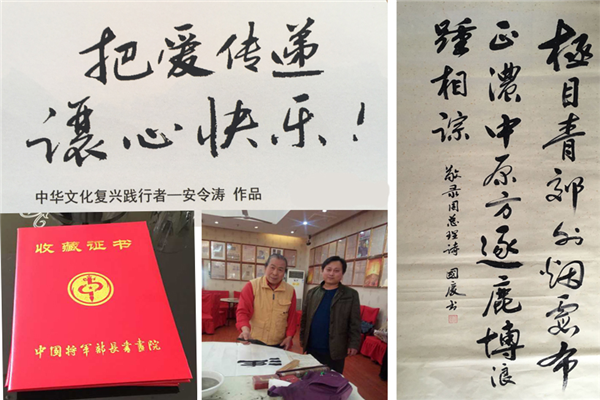 把爱传递
讓心快乐！
中华文化复兴践行者—安令涛 作品
收藏证书
中国将军部长书画院
極目青郊外烟霾布
正濃中原方逐鹿博浪
踵相踪
敬录周总理诗